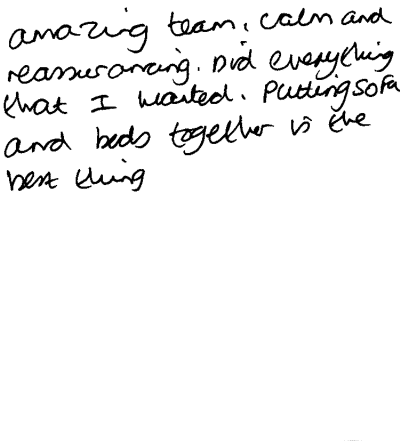 amazing team, calm and
reassurancing. Did everything
that I wanted. Putting sofa
and beds together is the
best thing